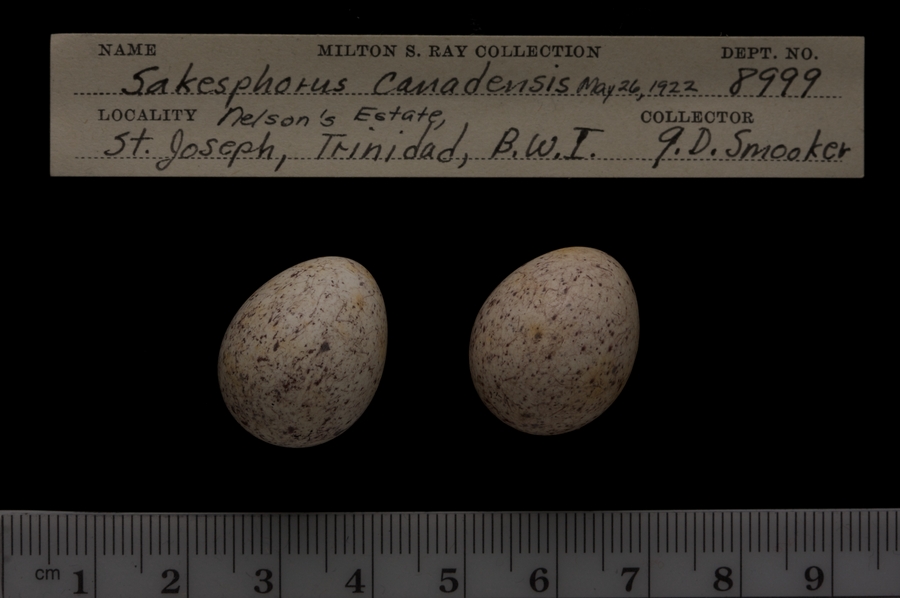 NAME MILTON S. RAY COLLECTION DEPT. NO.
Sakesphorus canadensis May 26, 1922 8999
LOCALITY Nelson's Estate, COLLECTOR
St. Joseph, Trinidad, B.W.I. G.D. Smooker
cm 1 2 3 4 5 6 7 8 9